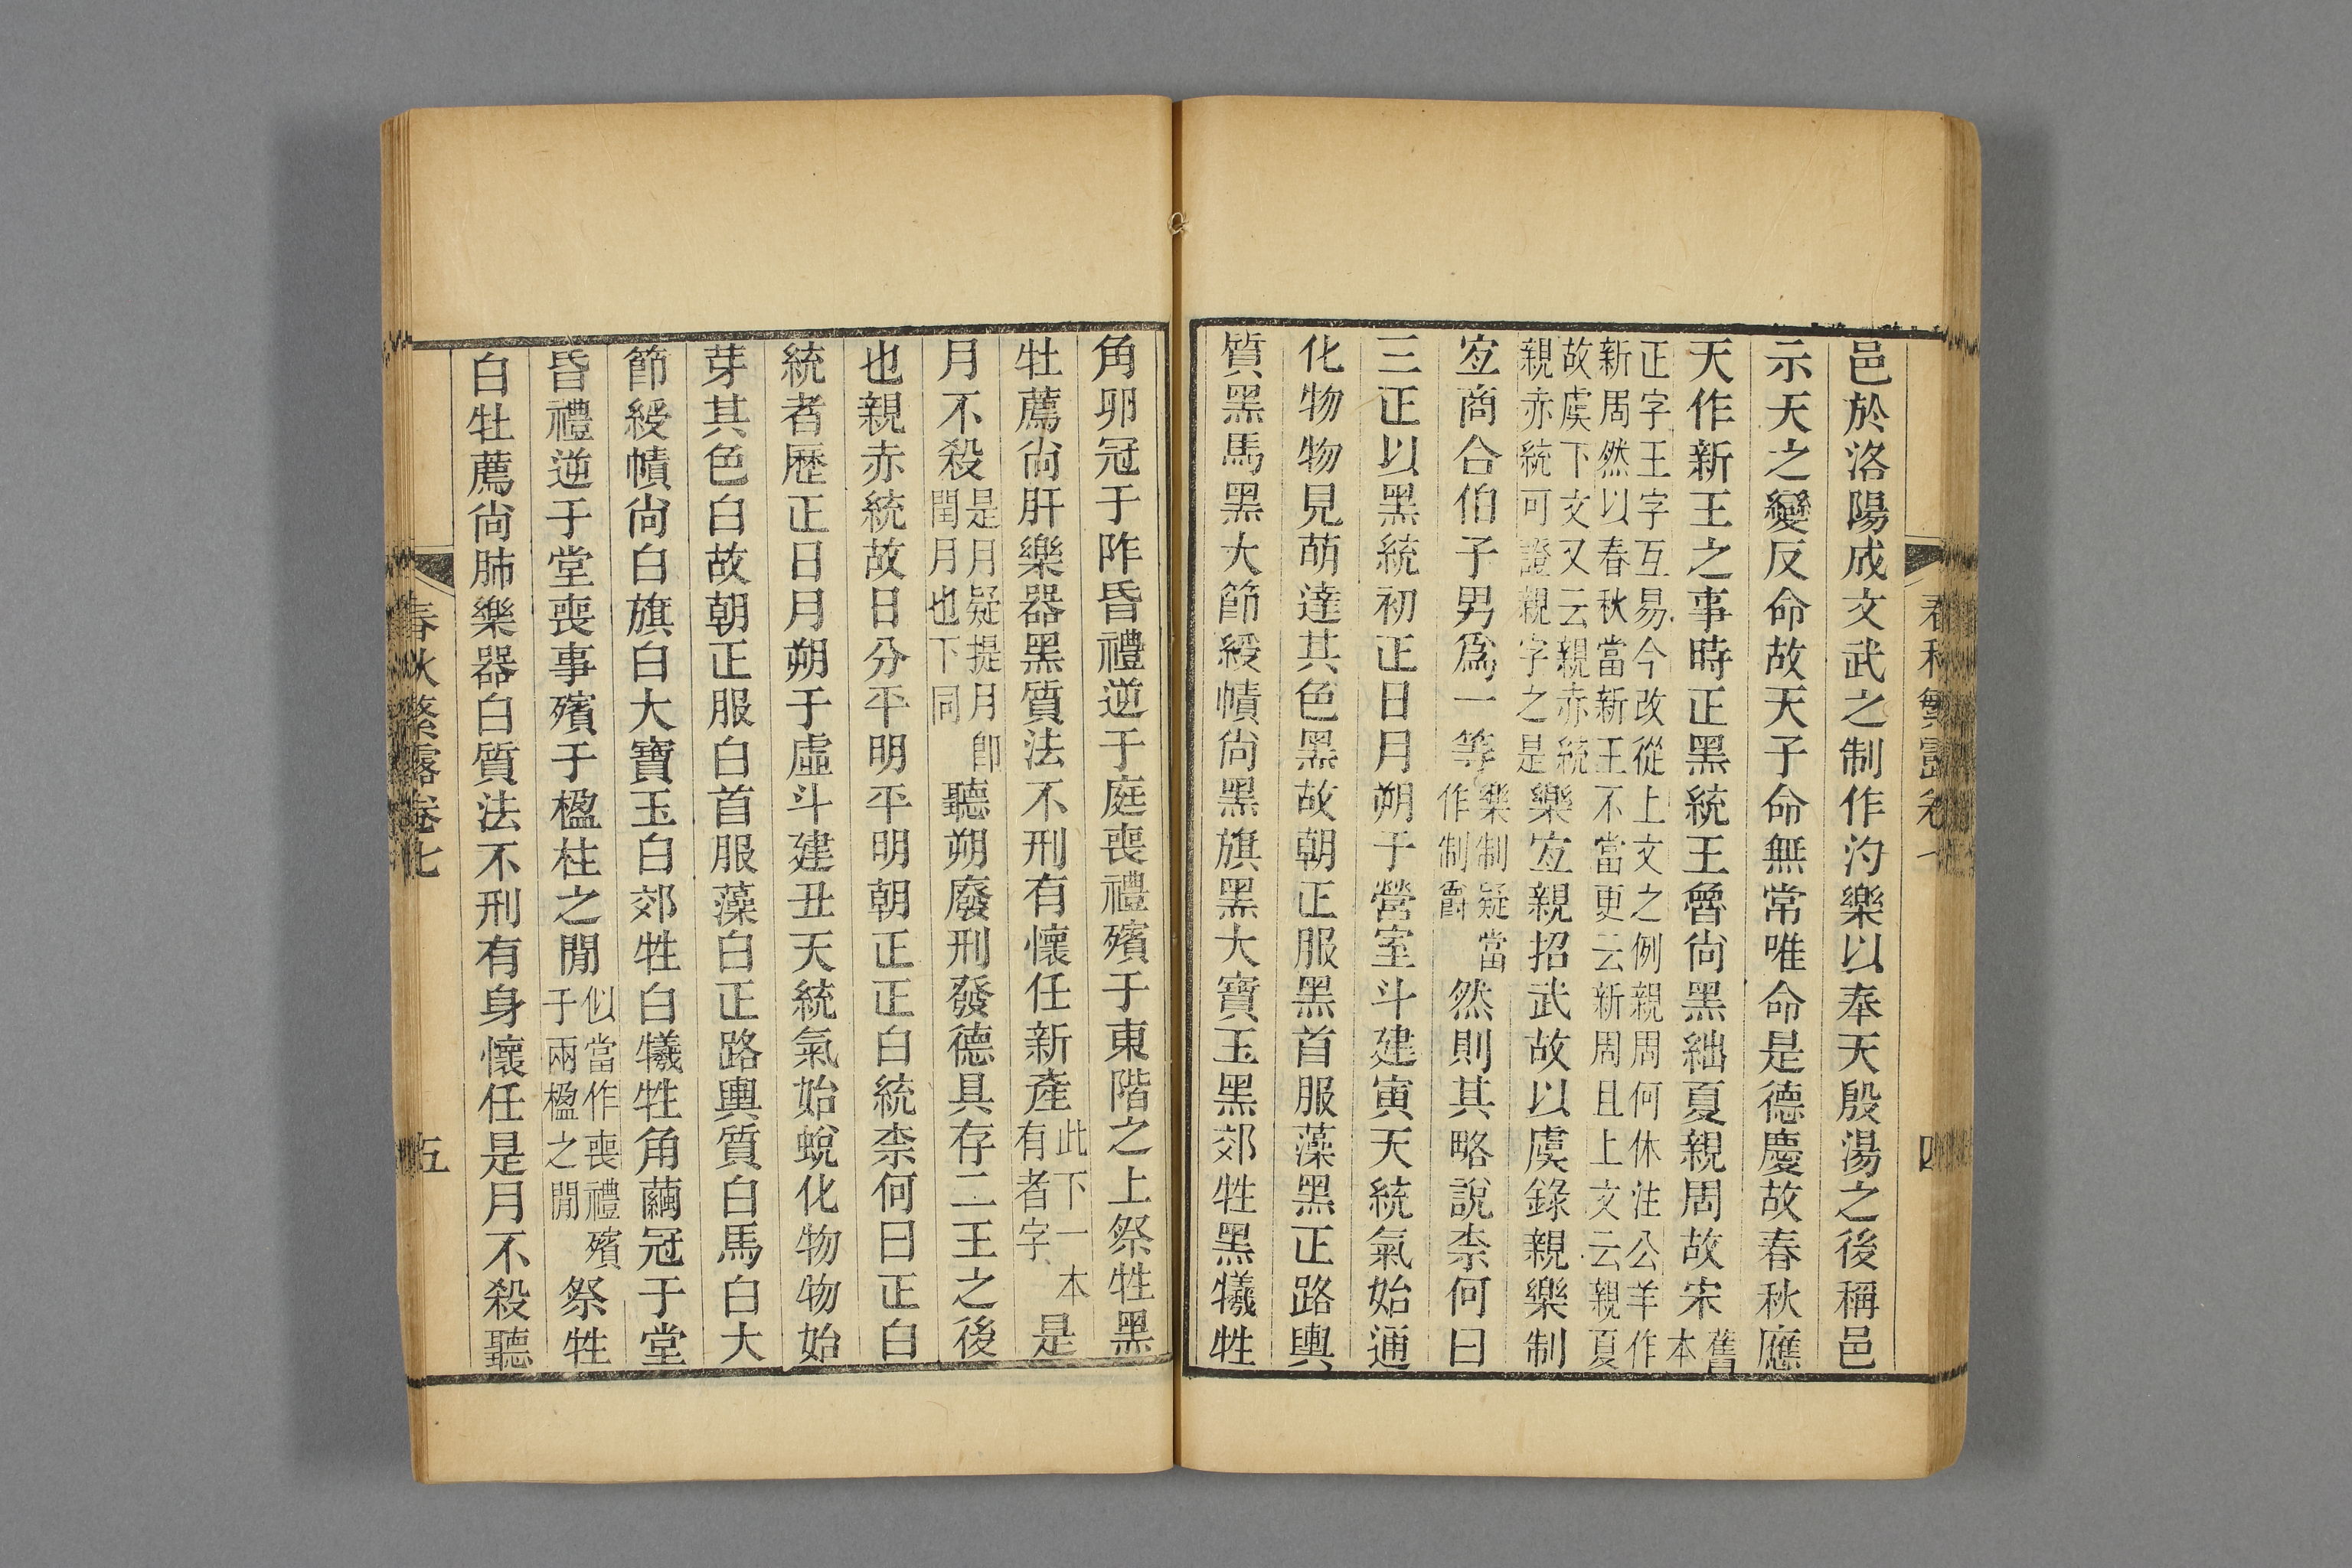 春秋繁露卷七 四
邑於洛陽成文武之制作汋樂以奉天殷湯之後稱邑
示天之變反命故天子命無常唯命是德慶故春秋應
天作新王之事時正黑統王魯尚黑絀夏親周故宋舊本
正字王字互易今改從上文之例親周何休注公羊作
新周然以春秋當新王不當更云新周且上文云親夏
故虞下文又云親赤統親赤統可證親字之是樂宐親招武故以虞錄親樂制
宐商合伯子男爲一等樂制疑當作制爵然則其略說柰何曰
三正以黑統初正日月朔于營室斗建寅天統氣始通
化物物見萌達其色黑故朝正服黑首服藻黑正路輿
質黑馬黑大節綬幘尚黑旗黑大寶玉黑郊牲黑犧牲
角卵冠于阼昏禮逆于庭喪禮殯于東階之上祭牲黑
牡薦尚肝樂器黑質法不刑有懷任新產此下一本有者字是
月不殺是月疑提月卽閏月也下同聽朔廢刑發德具存二王之後
也親赤統故日分平明平明朝正正白統柰何曰正白
統者歷正日月朔于虛斗建丑天統氣始蛻化物物始
芽其色白故朝正服白首服藻白正路輿質白馬白大
節綬幘尚白旗白大寶玉白郊牲白犧牲角繭冠于堂
昏禮逆于堂喪事殯于楹柱之閒似當作喪禮殯于兩楹之閒祭牲
白牡薦尚肺樂器白質法不刑有身懷任是月不殺聽
春秋繁露卷七 五